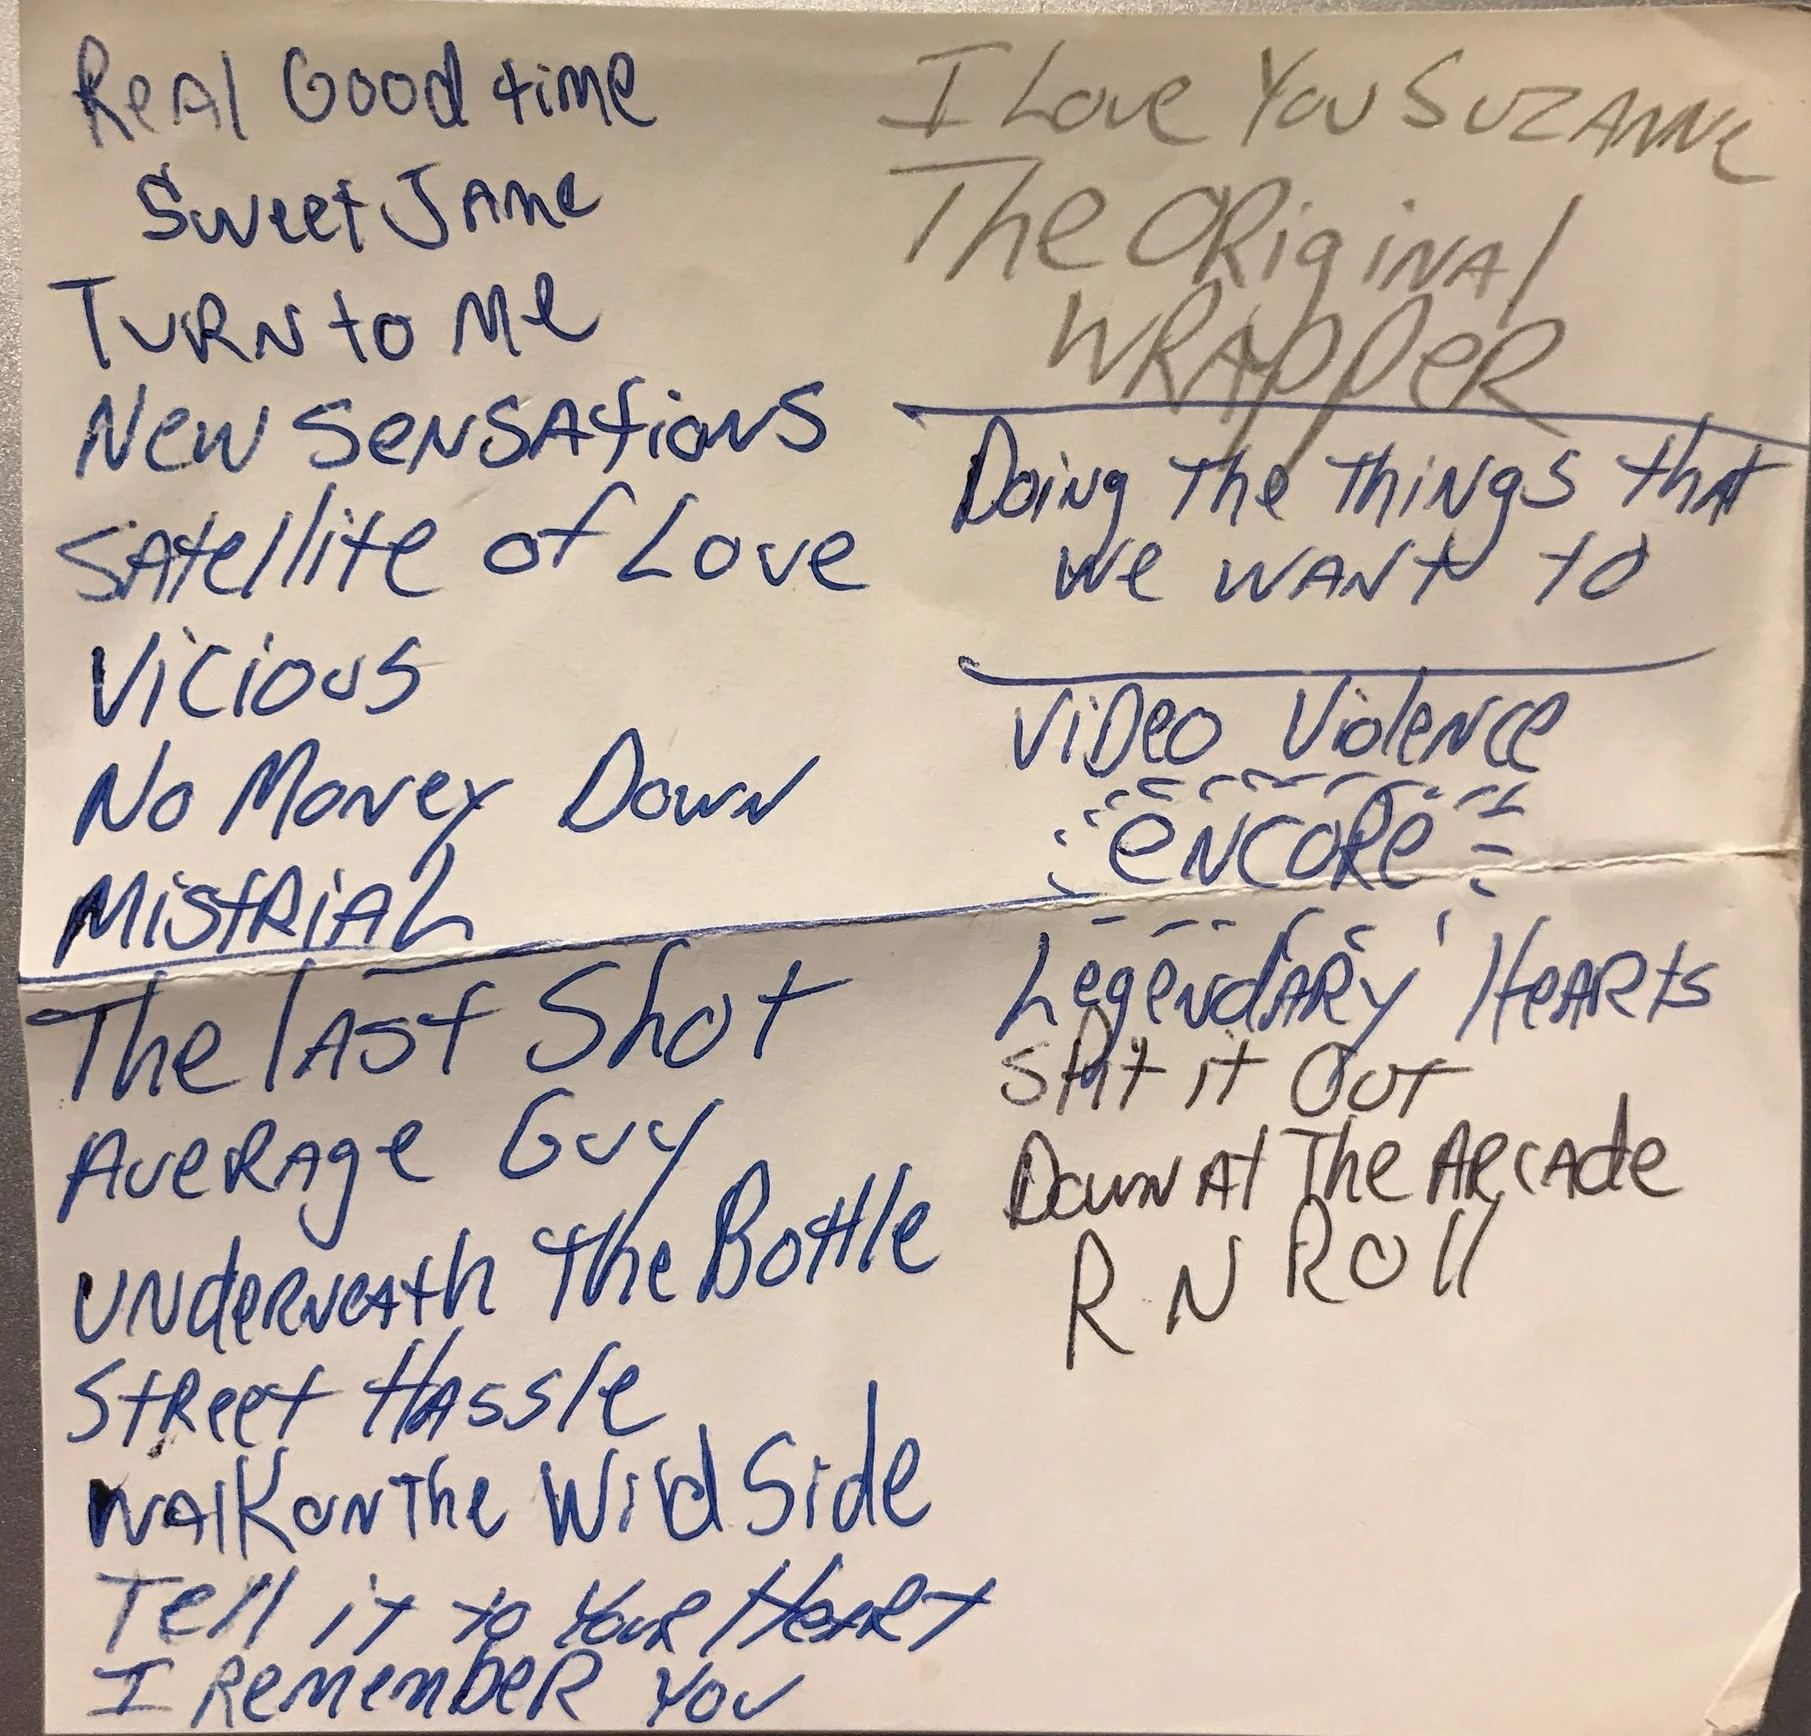 Real Good time
Sweet Jane
Turn to Me
New Sensations
Satellite of Love
Vicious
No Money Down
Mistrial
The last Shot
Average Guy
Underneath The Bottle
Street Hassle
Walk on The Wild Side
Tell it to Your Heart
I Remember You
I Love You Suzanne
The Original
Wrapper
Doing The Things that
we want to
Video Violence
encore
Legendary Hearts
Spit it Out
Down At The Arcade
R N Roll